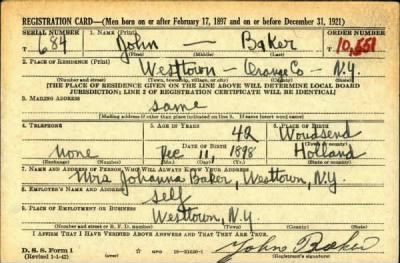 REGISTRATION CARD—(Men born on or after February 17, 1897 and on or before December 31, 1921)
SERIAL NUMBER 1. NAME (Print) ORDER NUMBER
T 684 John — Baker 10,551
(First) (Middle) (Last)
2. PLACE OF RESIDENCE (Print)
Westtown — Orange Co — N.Y.
(Number and street) (Town, township, village, or city) (County) (State)
[THE PLACE OF RESIDENCE GIVEN ON THE LINE ABOVE WILL DETERMINE LOCAL BOARD
JURISDICTION; LINE 2 OF REGISTRATION CERTIFICATE WILL BE IDENTICAL]
3. MAILING ADDRESS
same
[Mailing address if other than place indicated on line 2. If same insert word same]
4. TELEPHONE 5. AGE IN YEARS 6. PLACE OF BIRTH
42 Woudsend
DATE OF BIRTH (Town or county)
none Dec 11, 1898 Holland
(Exchange) (Number) (Mo.) (Day) (Yr.) (State or country)
7. NAME AND ADDRESS OF PERSON WHO WILL ALWAYS KNOW YOUR ADDRESS
Mrs Johanna Baker, Westtown, N.Y.
8. EMPLOYER'S NAME AND ADDRESS
self
9. PLACE OF EMPLOYMENT OR BUSINESS
Westtown, N.Y.
(Number and street or R. F. D. number) (Town) (County) (State)
I AFFIRM THAT I HAVE VERIFIED ABOVE ANSWERS AND THAT THEY ARE TRUE.
D. S. S. Form 1
(Revised 1-1-42) GPO John Baker
(Registrant's signature)